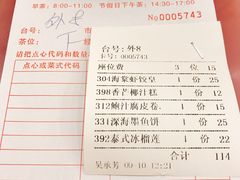 早茶:8:00--11:00 节假日下午茶:14:30--17:00
NO 0005743
外8
台号:
茶位:
请把点心代码和数量
点心或菜式代码
台号:外8
卡号:0005743
座位费 3 位 15
304海棠虾饺皇 1 份 25
398香芒椰汁糕 1 份
312鲍汁腐皮卷 1 份 15
331深海墨鱼饼 1 份 25
392泰式冰榴莲 1 份 22
合计 114
吴承芳 09-10 12:21